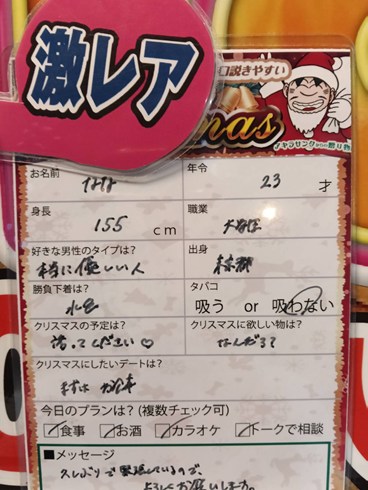 激レア
口説きやすい
mas
お名前 なな 年令 23 才
身長 155 cm 職業
好きな男性のタイプは? 出身
本当に優しい人 京都
勝負下着は? タバコ
水色 吸う or 吸わない
クリスマスの予定は? クリスマスに欲しい物は?
誘ってください♡ なんだろう
クリスマスにしたいデートは?
まずは お食事
今日のプランは? (複数チェック可)
☑食事 ☑お酒 ☑カラオケ ☑トークで相談
■メッセージ
久しぶりで緊張しているので、
よろしくお願いします。